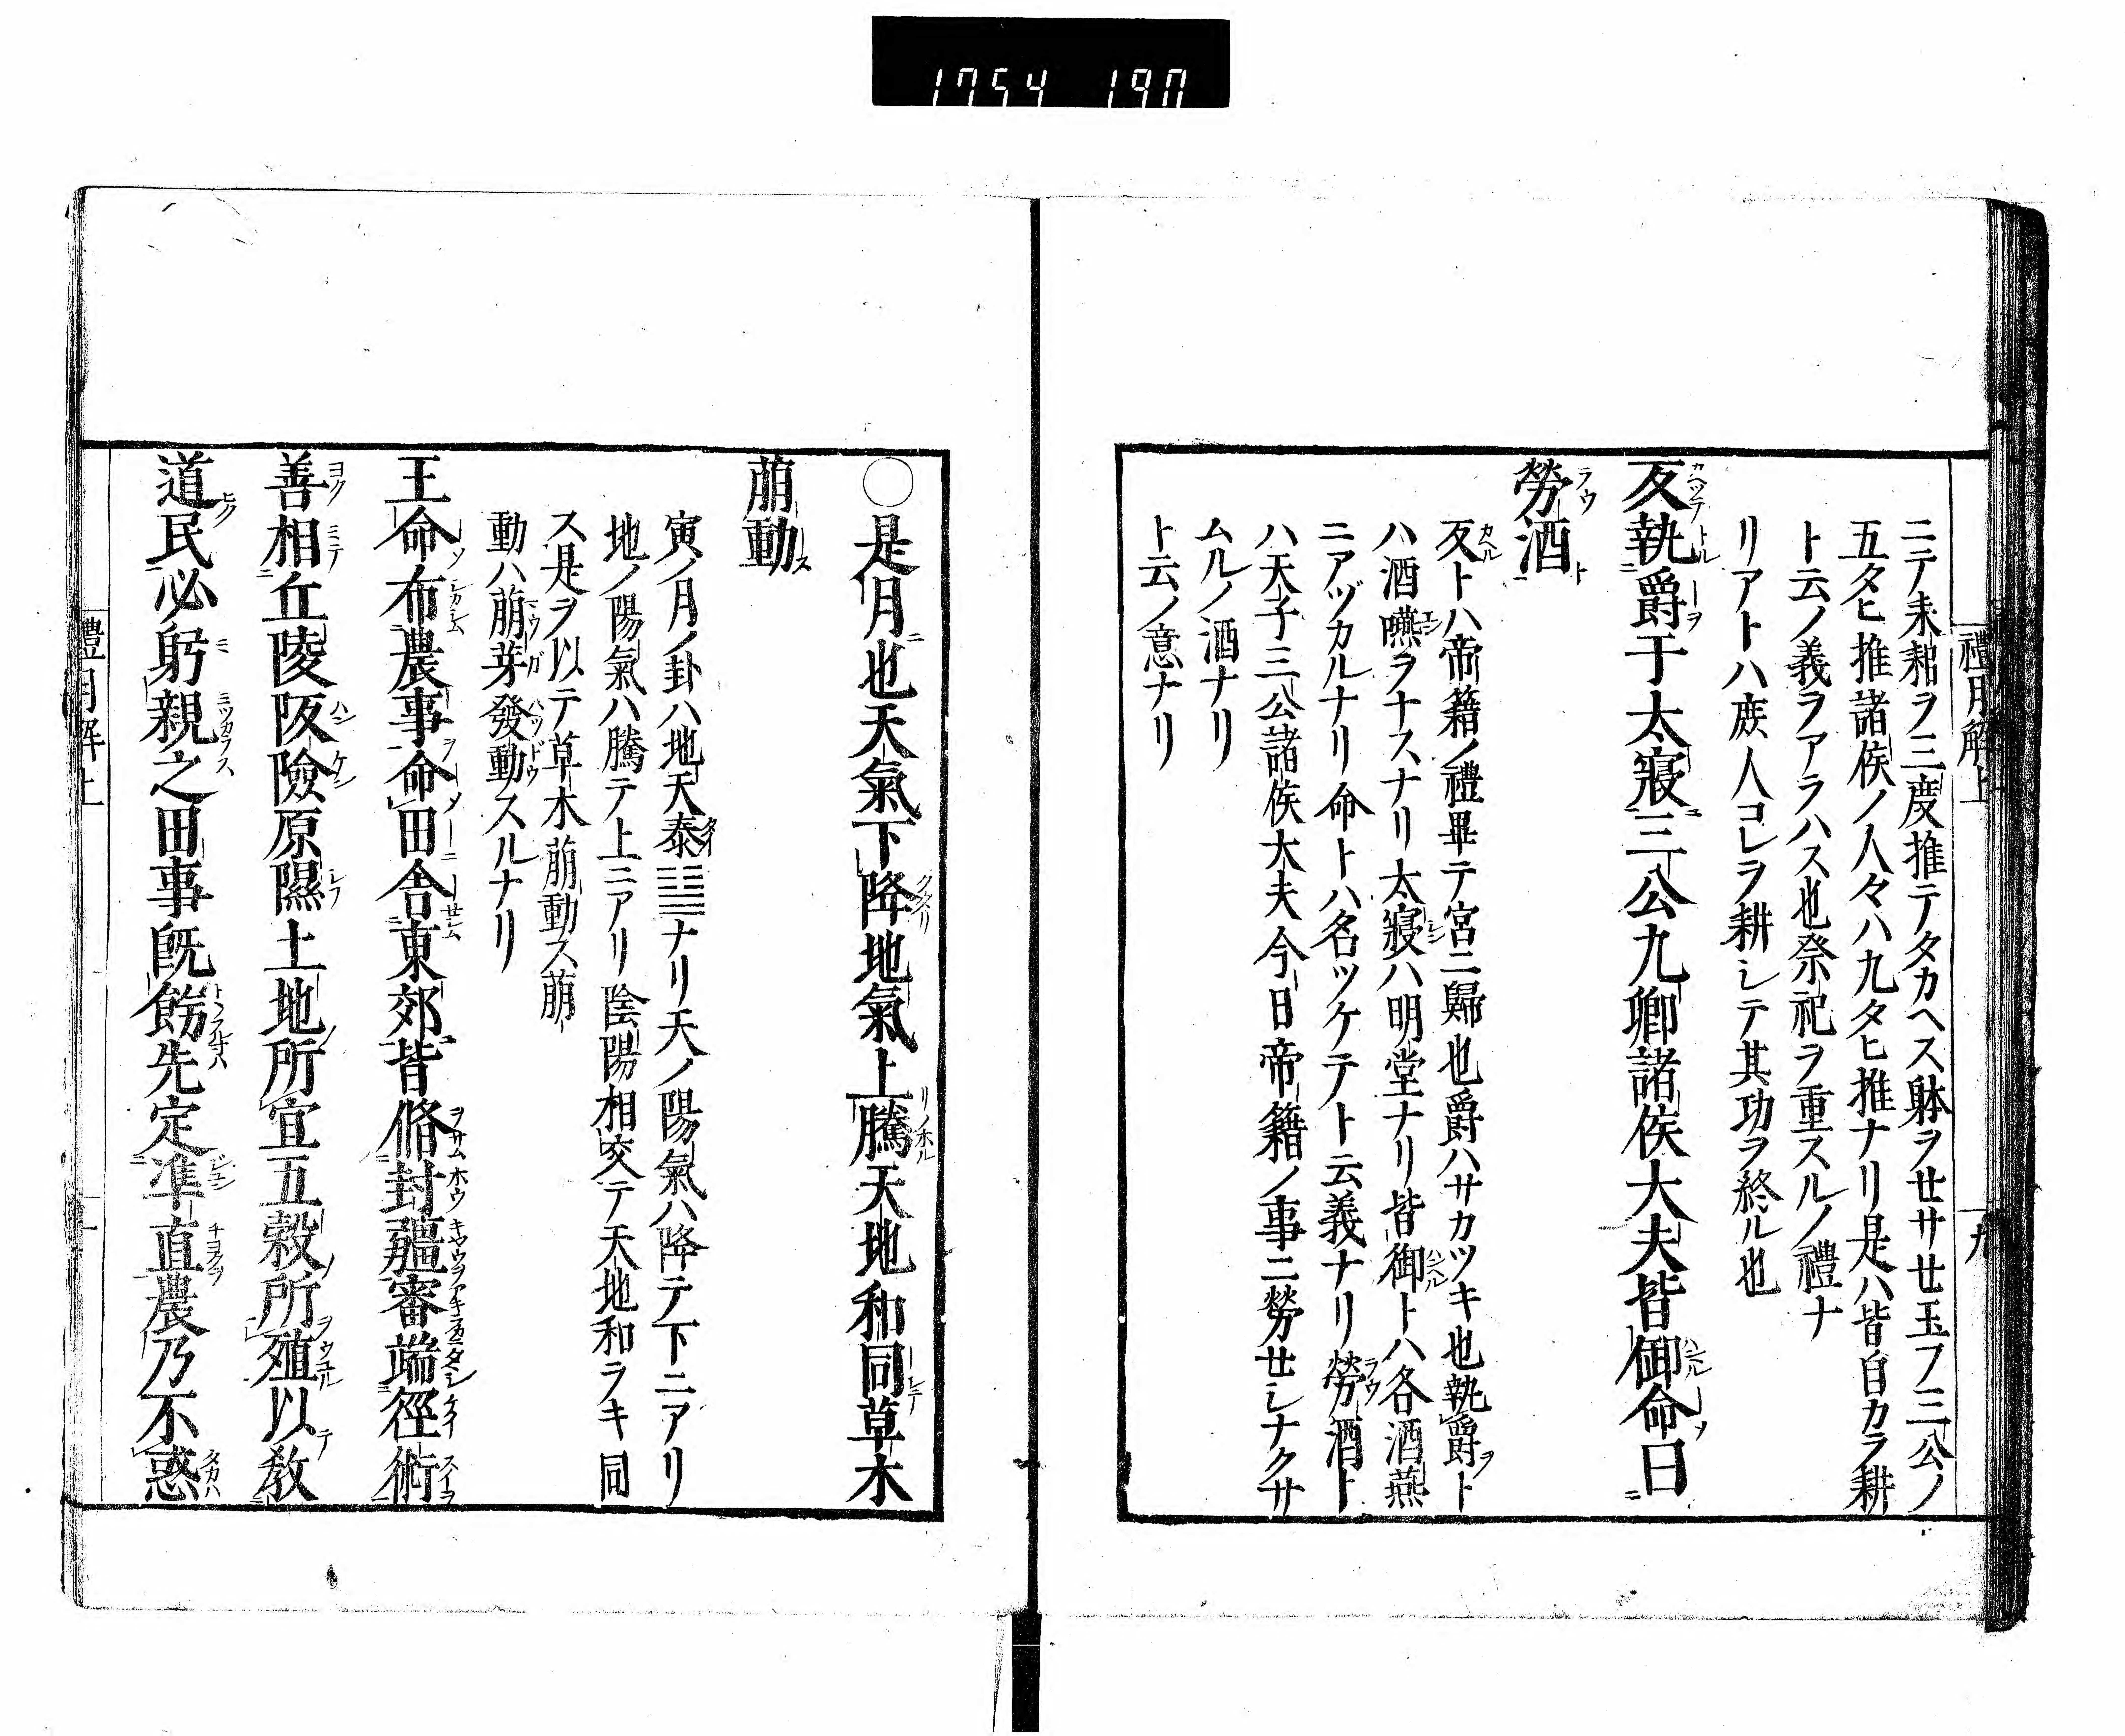 1754 190
禮月解上
九
ニテ耒耜ヲ三度推テタカヘス躰ヲセサセ玉フ三公ノ
五タヒ推諸侯ノ人々ハ九タヒ推ナリ是ハ皆自カラ耕
ト云ノ義ヲアラハス也祭祀ヲ重スルノ禮ナ
リアトハ庶人コレヲ耕シテ其功ヲ終ル也
反執爵于太寢三公九卿諸侯大夫皆御命曰
勞酒
反トハ帝籍ノ禮畢テ宮ニ歸也爵ハサカツキ也執爵ト
ハ酒嚥ヲナスナリ太寢ハ明堂ナリ皆御トハ各酒燕
ニアヅカルナリ命トハ名ツケテト云義ナリ勞酒ト
ハ天子三公諸侯大夫今日帝籍ノ事ニ勞セシナクサ
ムルノ酒ナリ
ト云ノ意ナリ
○是月也天氣下降地氣上騰天地和同草木
萠動
寅ノ月ノ卦ハ地天泰䷊ナリ天ノ陽氣ハ降テ下ニアリ
地ノ陽氣ハ騰テ上ニアリ陰陽相交テ天地和ラキ同
ス是ヲ以テ草木萠動ス萠
動ハ萠芽發動スルナリ
王命布農事命田舎東郊皆脩封疆審端徑術
善相丘陵阪險原隰土地所宜五穀所殖以敎
道民必躬親之田事既飭先定準直農乃不惑
禮月解上